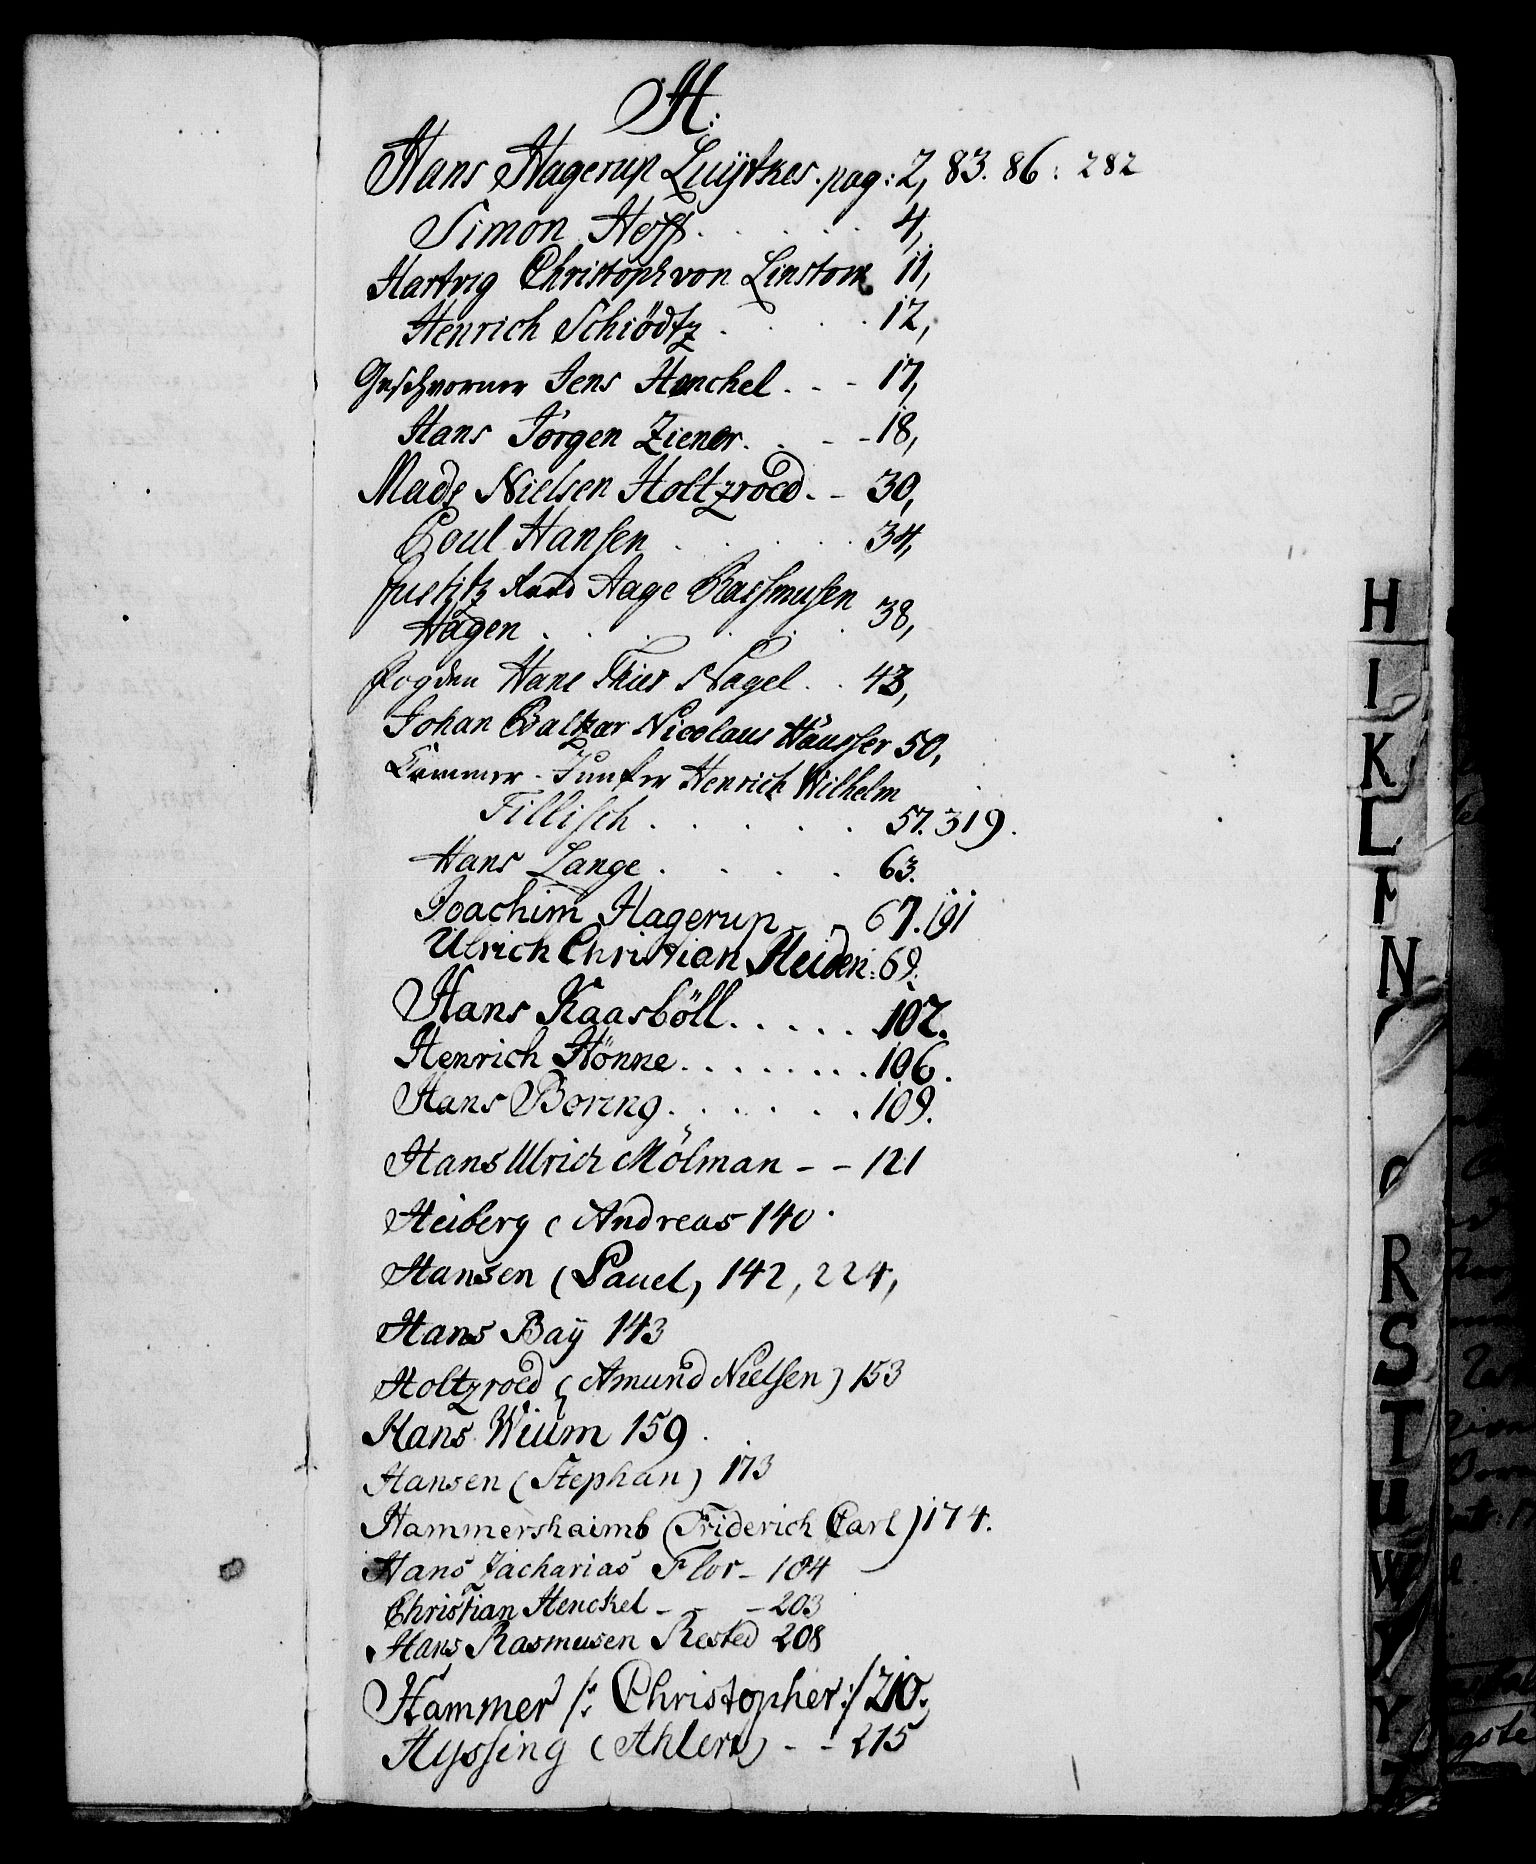 H:
Hans Hagerup Luÿtkes. pag: 2, 83. 86: 282
Simon Hoff . . . . . . 4,
Hartvig Christoph von Linstow 11,
Henrich Schiödtz . . . . 12,
Geschvorner Jens Henchel . - - 17,
Hans Jörgen Ziener . . - - 18,
Mads Nielsen Holtzroed. - 30,
Poul Hansen . . . . . 34,
Justitz Raad Aage Rasmusen
Hagen . . . . . . 38,
Fogden Hans Thier Nagel . . 43,
Johan Baltzar Nicolaus Häusser 50,
Cammer-Junker Henrich Wilhelm
Tillisch . . . . . . 57. 319.
Hans Lange . . . . . 63.
Joachim Hagerup - - 67. 191
Ulrich Christian Heiden: 69.
Hans Kaasböll . . . . . 102.
Henrich Hönne . . . . . . . . 106.
Hans Boring . . . . . . . 109.
Hans Ulrich Mölman - - 121
Heiberg (Andreas 140.
Hansen (Pauel) 142, 224,
Hans Baÿ 143
Holtzroed (Amund Nielsen) 153
Hans Wium 159.
Hansen (Stephan) 173
Hammershaimb (Friderich Carl) 174.
Hans Zacharias Flor - 184
Christian Henckel - - - 203
Hans Rasmusen Rested 208
Hammer /: Christopher :/ 210.
Hyssing (Ahlert) - - 215
H
I
K
L
N
O
R
S
T
U
W
Y